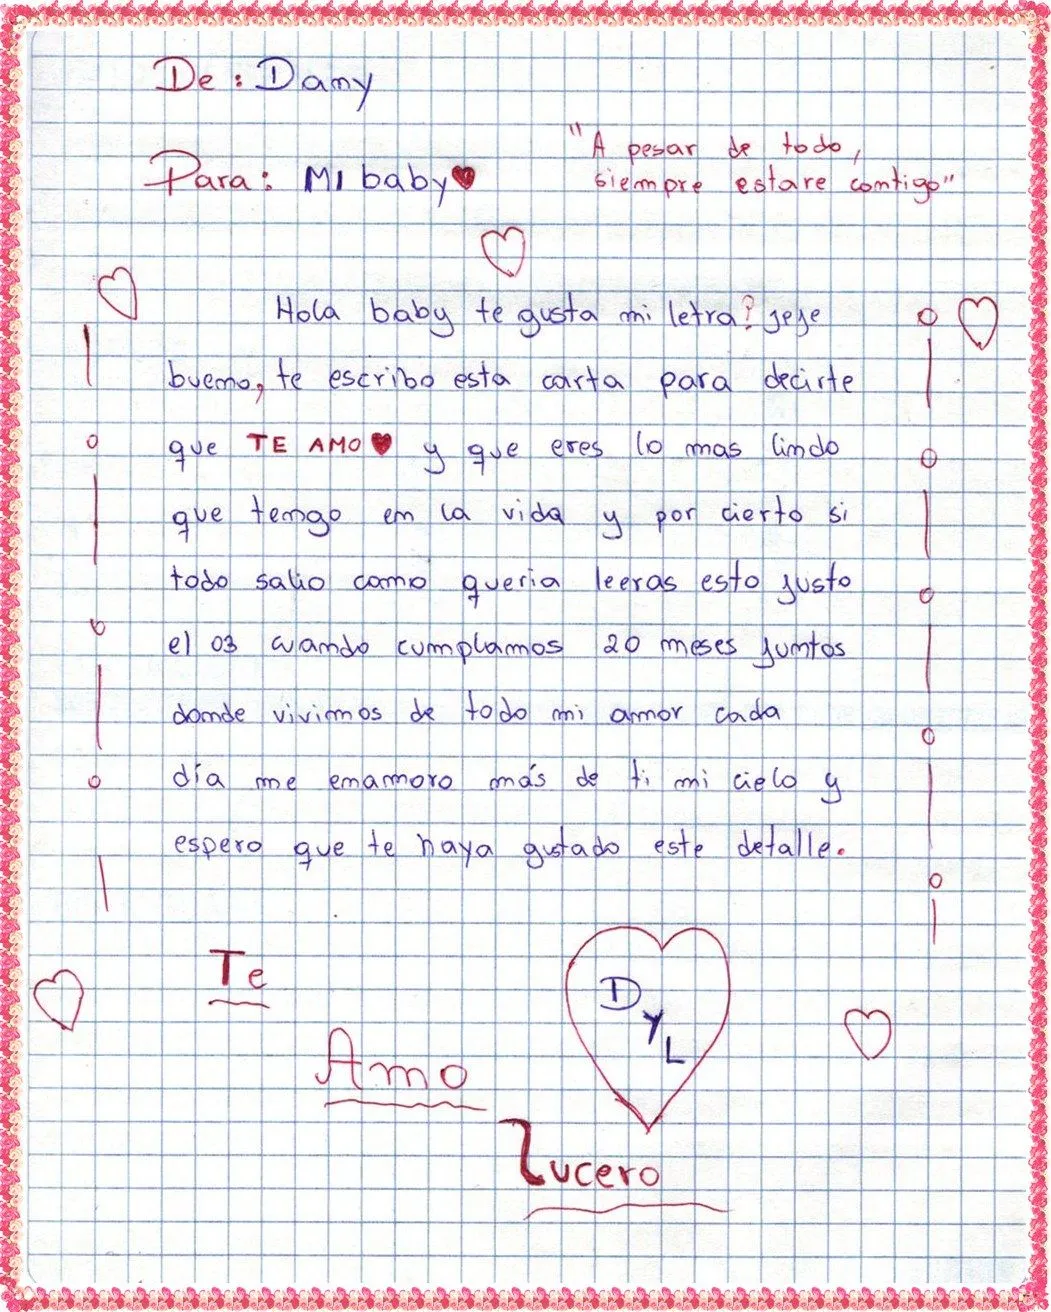 De: Damy
Para: MI baby♥
"A pesar de todo,
siempre estare contigo"
Hola baby te gusta mi letra? jeje
bueno, te escribo esta carta para decirte
que TE AMO♥ y que eres lo mas lindo
que tengo en la vida y por cierto si
todo salio como queria leeras esto justo
el 03 cuando cumplamos 20 meses juntos
donde vivimos de todo mi amor cada
día me enamoro más de ti mi cielo y
espero que te haya gustado este detalle.
Te
Amo
Lucero
D
y
L